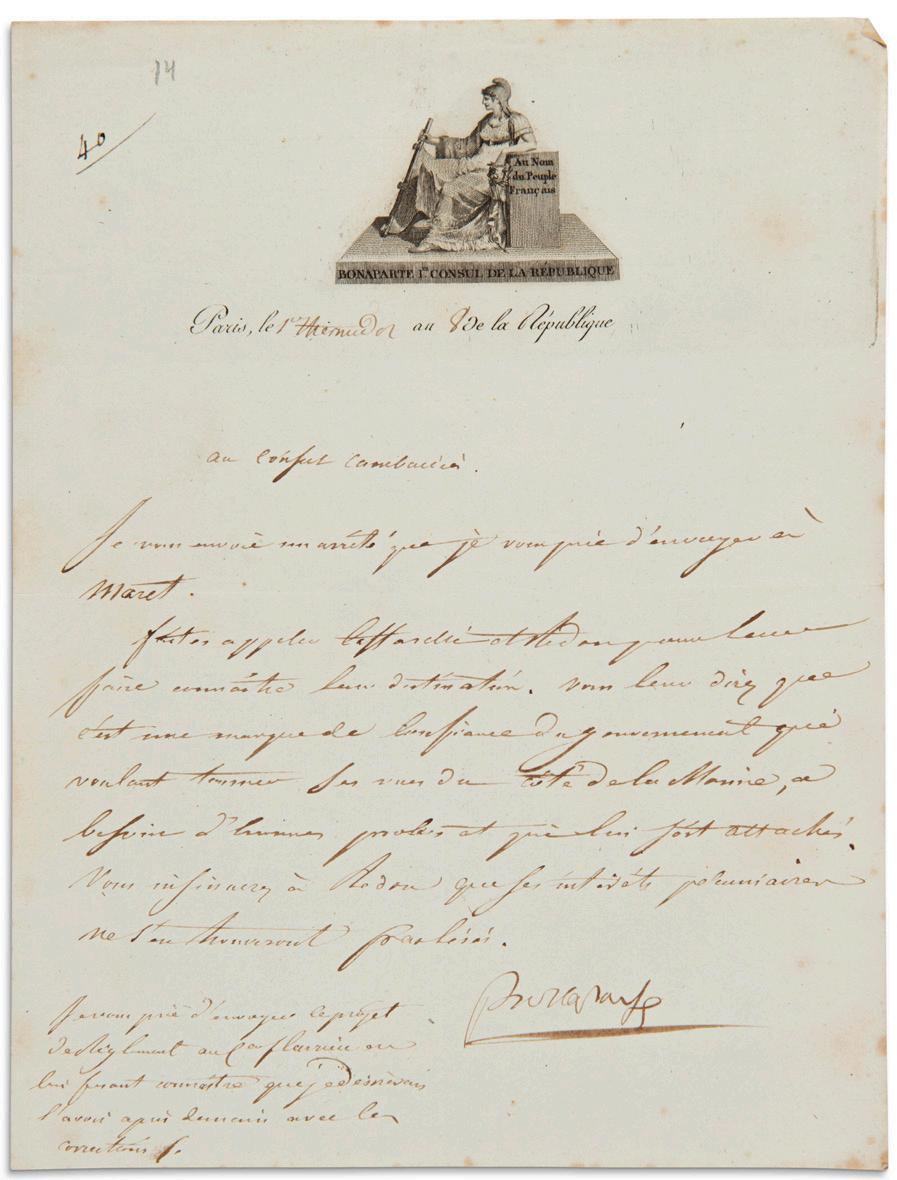 14
40
Au Nom
du Peuple
Français
BONAPARTE 1er CONSUL DE LA REPUBLIQUE
Paris, le 1er thermidor an 8 de la République
au consul cambacérès.
Je vous envoie un arrêté que je vous prie d'envoyer à
Maret.
faites appeler et Redon pour leur
faire connaître leur destination. vous leur direz que
c'est une marque de confiance du gouvernement qui
voulant tourner ses vues du côté de la Marine, a
besoin d'hommes probes et qui lui sont attachés.
Vous insinuerez à Redon que ses intérêts pécuniaires
ne s'en trouveront pas lésés.
Bonaparte
Je vous prie d'envoyer le projet
de Règlement au Cen en
lui faisant connaître que je désirerais
l'avoir après demain avec les
corrections